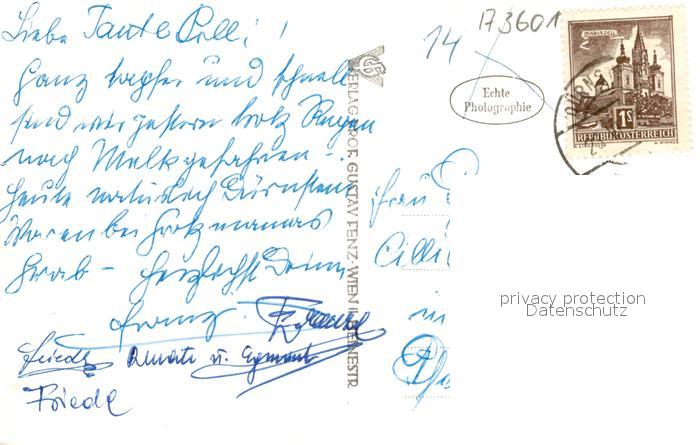 Liebe Tante Cilli!
Ganz tapfer und schnell
sind wir gestern trotz Regen
nach Melk gefahren -
heute natürlich Dürnstein
Waren bei Großmamas
Grab - Herzlichst Deine
Franz.
Friedl Renate u. Egmont
Friedl
VERLAG PROF. GUSTAV FENZ·WIEN
14
173601
Echte
Photographie
MARIAZELL
1S
REPUBLIK ÖSTERREICH
Frau
Cilli
in
privacy protection
Datenschutz